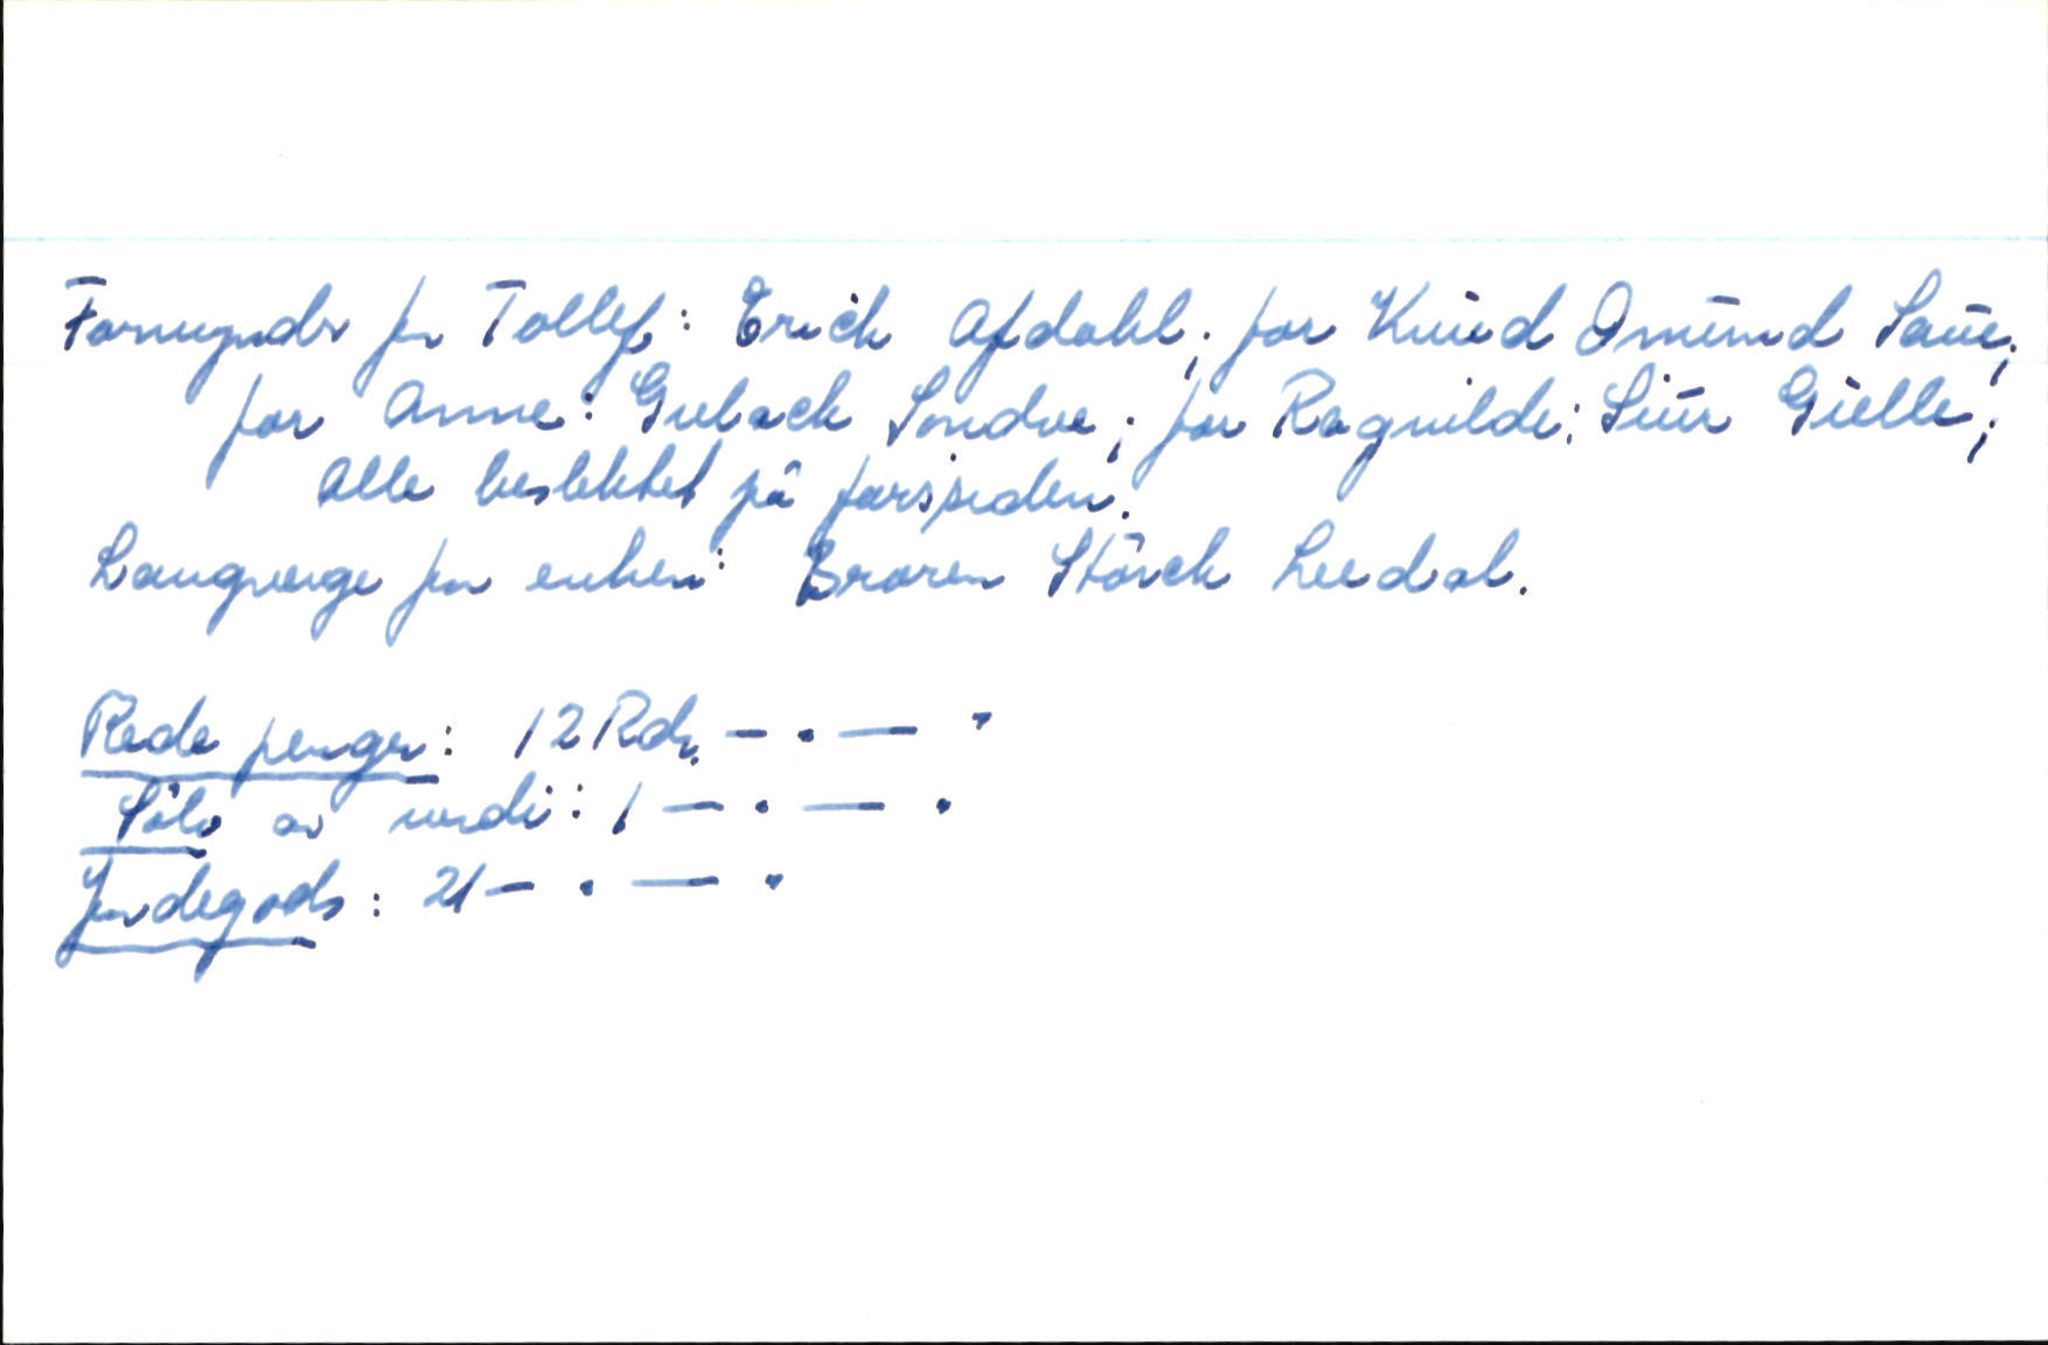 Formynder for Tollef: Erich Afdahl; for Knud Omund Saue;
for Anne: Gulack Sondve; for Ragnilde: Siur Gielle;
alle beslektet på farssiden.
Laugverge for enken: Broren Störck Leedal.
Rede penger: 12 Rdr. - . - "
Sölv av verdi: 1 - . - .
Jordegods: 21 - . - "